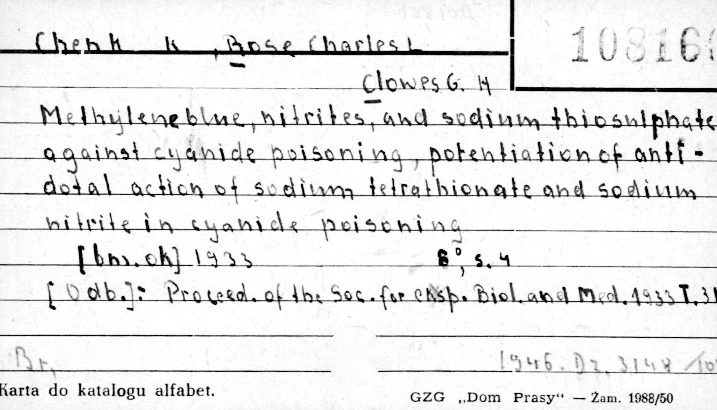 Chenk K, Rose Charles L
10816
Clowes G. H
Methyleneblue, nitrites, and sodium thiosulphate
against cyanide poisoning, potentiation of anti-
dotal action of sodium tetrathionate and sodium
nitrite in cyanide poisoning
[bm. ok] 1933 8°, s. 4
[Odb.]: Proceed. of the Soc. for exsp. Biol. and Med. 1933 T. 31
Br. 1946. Dz. 3148
Karta do katalogu alfabet.
GZG „Dom Prasy“ — Zam. 1988/50